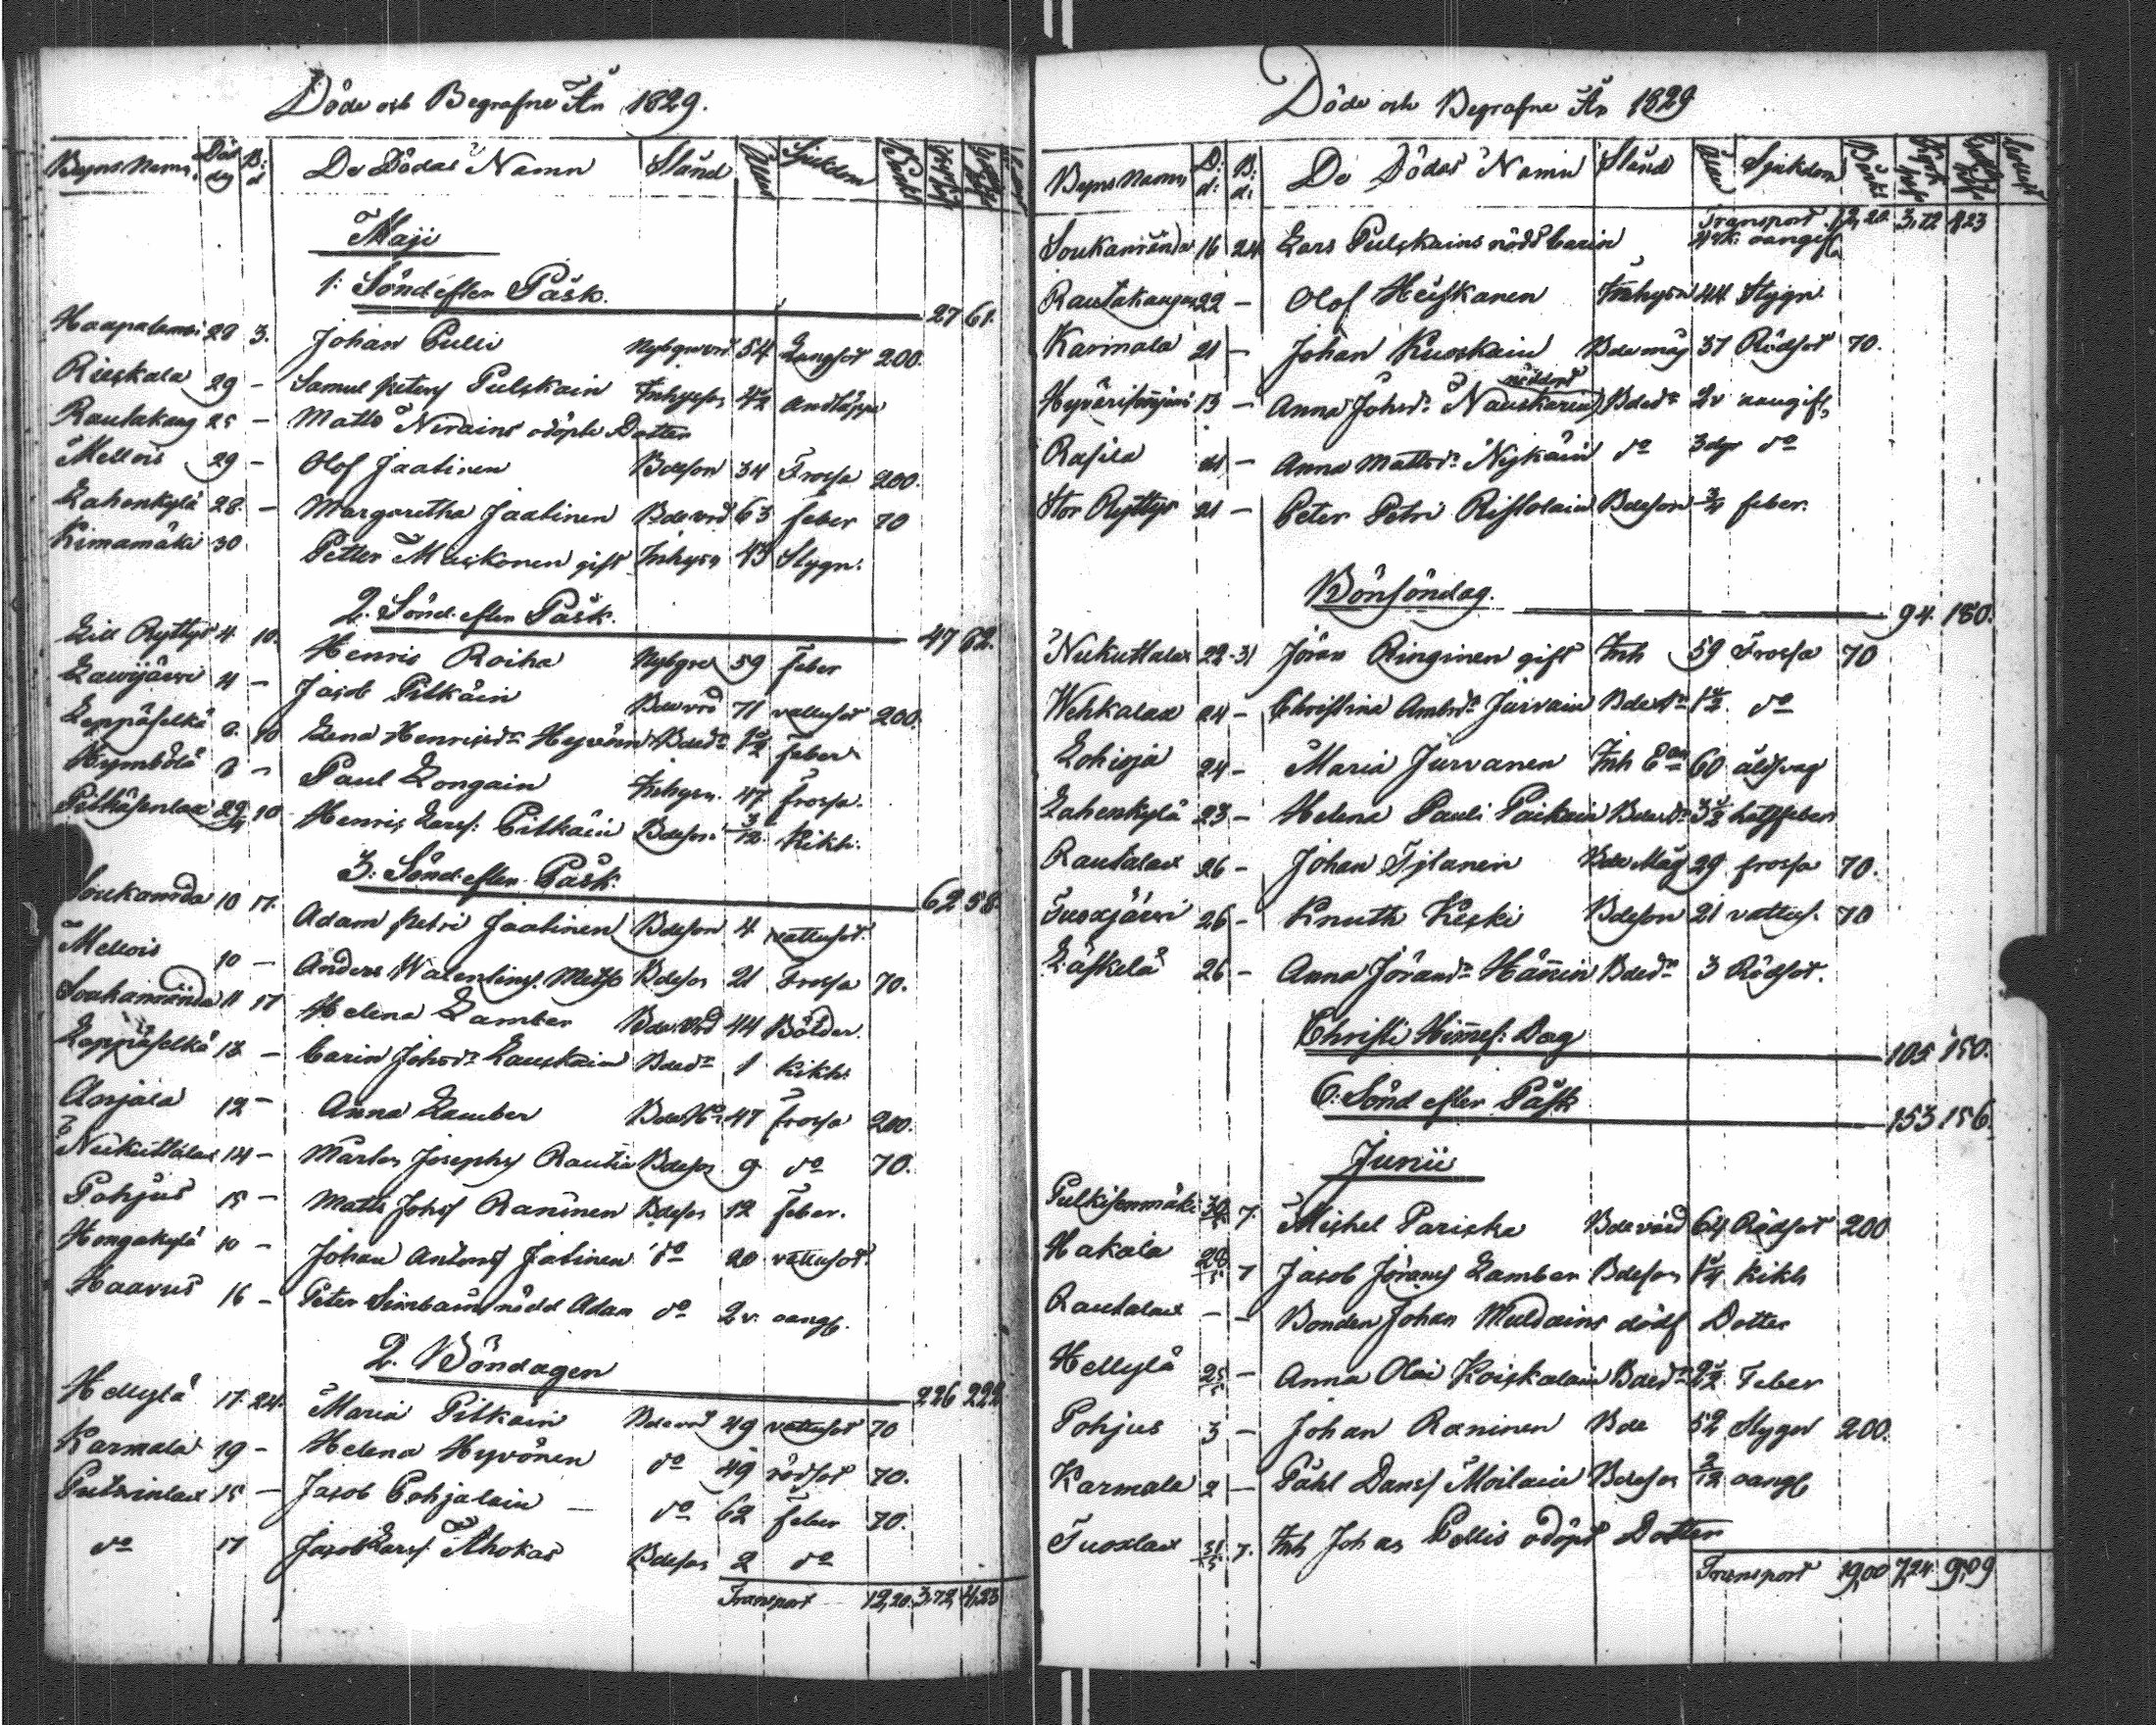 Döde och Begrafne År 1829.
Byns Namn Död dag B: d De Dödas Namn Stånd Ålder Sjukdom
Maji
1: Sönd efter Påsk. 27 61.
Haapalamsi 28 3. Johan Pulli 54 Lungsot 200.
Rieskala 29 – Samuel Peters Pulskain Inhyson andtäppa
Rautakang 25 – Matts Nirains odöpte Dotter
Mellois 29 – Olof Jaatinen Bdeson 34 Frossa 200.
Lahenkylä 28. – Margaretha Jaatinen Bdevrd 63 feber 70
Kimamäki 30 Petter Muskonen gift Inhysn 43 Stygn.
2. Sönd. efter Påsk. 47 62.
Lill Ryttyo 4. 10. Henric Roiha Nybgre 59 feber
Lavijärvi 4 – Jacob Pitkäin Bdevrd 71 vattusot 200.
Leppäselkä 8. 10 Lena Henricsdr Hyvönin Bdedr feber
Kymbölä 8 – Paul Longain Inhysn. 47 frossa.
Pitkäsenlax 29/4 10 Henric Larss: Pitkäin Bdeson 3/12 Kikh.
3: Sönd. efter Påsk. 62 58.
Soukamida 10 17. Adam Petri Jaatinen Bdeson 4. vattusot.
Mellois 10 – Anders Walentins. Metso Bdeson 21 Frossa 70.
Soukamända 11 17 Helena Lamber Bde Vrd 44 Bölder.
Leppäselkä 13 – Carin Johsdr Lauskain Bdedr 1 Kikh.
Anjala 12 – Anna Lamber 47 frossa 200.
Niukuttalax 14 – Marten Josephs Rautia Bdeson 9 do 70.
Pohjus 15 – Matts Johs Raninen Bdeson 12 feber.
Hongakylä 10 – Johan Antons Jatinen do 20 vattusot.
Haavus 16 – Peter Simbains nödd Adam do 2 v. oangf.
2. Böndagen 226 222
Hellylä 17. 24. Maria Pitkäin Bdevrd 49 vattusot 70
Karmala 19 – Helena Hyvönen do 49 rödsot 70.
Putzinlax 15 – Jacob Pohjalain – do 62 feber 70.
do 17 Jacob Lars Ahokas Bdeson 2 do
Transport 12,20. 3,72, 4,23
Döde och Begrafne År 1829
Byns Namn D: d: B: d: De Dödas Namn Stånd Ålder Sjukdom
Transport 12,20. 3,72 4,23
Soukamända 16 24 Lars Pulskains nödd Carin oangif
Rautakangas 22 – Olof Heiskanen Inhysn 44 Stygn.
Karmala 21 – Johan Kuoskain Bde måg 37 Rödsot 70.
Hyvärisenjemi 13 – Anna Johsdr Nauskaren nöddopt Bdedr 2v oangif,
Rasila 21 – Anna Mattsdr Nykäin do 3 dgr do
Stor Ryttyo 21 – Peter Petri Ristolain Bdeson feber.
Bönsöndag. 94. 180.
Niukuttalax 22 31 Jöran Ringinen gift Inh 59 Frossa 70
Wehkalax 24 – Christina Jurvain do
Lohioja 24 – Maria Jurvanen Inh 60 åldsvag
Lahenkylä 23 – Helena Pauli Paikain
Rautalax 26 – Johan Iitanen Bde Måg 29 frossa 70.
Tuoxjärvi 26 – Knuth Keski Bdeson 21 vattus. 70
Läskelä 26 – Anna Jöransdr Hännin Bdedr 3 Rödsot.
Christi Himmelsf: Dag 105 150.
6. Sönd efter Påsk 153 156.
Junii
Pulkisenmäki 30/5 7. Michel Pariska Bde värd 64 Rödsot 200
Hakala 28/5 7 Jacob Jörans Lamber Bdeson kikh
Rautalax – – Bonden Johan Muldains dödf Dotter
Hellylä 25/5 – Anna Olai Koiskalain Bdedr feber
Pohjus 3 – Johan Raninen Bde 52 Stygn 200.
Karmala 2 – Påhl Dans Moilain Bdeson 2/12 oangf
Tuoxlax 31/5 7. Inh Johas Pellis odöpt Dotter
Transport 19,00 7,24. 9,09